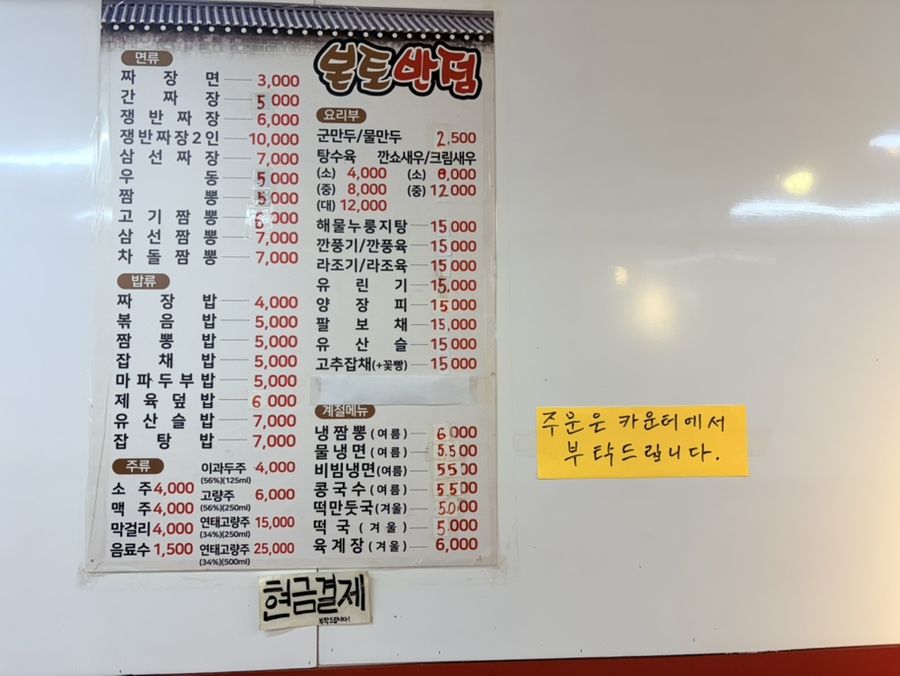 불로반점
면류
짜장면 3,000
간짜장 5000
쟁반짜장 6,000
쟁반짜장2인 10,000
삼선짜장 7,000
우동 5000
짬뽕 5,000
고기짬뽕 6000
삼선짬뽕 7,000
차돌짬뽕 7,000
밥류
짜장밥 4,000
볶음밥 5,000
짬뽕밥 5,000
잡채밥 5,000
마파두부밥 5,000
제육덮밥 6000
유산슬밥 7,000
잡탕밥 7,000
주류
소주 4,000
맥주 4,000
막걸리 4,000
음료수 1,500
이과두주 4,000
(56%)(125ml)
고량주 6,000
(56%)(250ml)
연태고량주 15,000
(34%)(250ml)
연태고량주 25,000
(34%)(500ml)
요리부
군만두/물만두 2,500
탕수육 깐쇼새우/크림새우
(소) 4,000 (소) 8,000
(중) 8,000 (중) 12000
(대) 12,000
해물누룽지탕 15000
깐풍기/깐풍육 15000
라조기/라조육 15000
유린기 15,000
양장피 15000
팔보채 15,000
유산슬 15000
고추잡채(+꽃빵) 15000
계절메뉴
냉짬뽕(여름) 6000
물냉면(여름) 5500
비빔냉면(여름) 5500
콩국수(여름) 5500
떡만둣국(겨울) 5000
떡국(겨울) 5,000
육계장(겨울) 6,000
현금결제
부탁드립니다!
주문은 카운터에서
부탁드립니다.